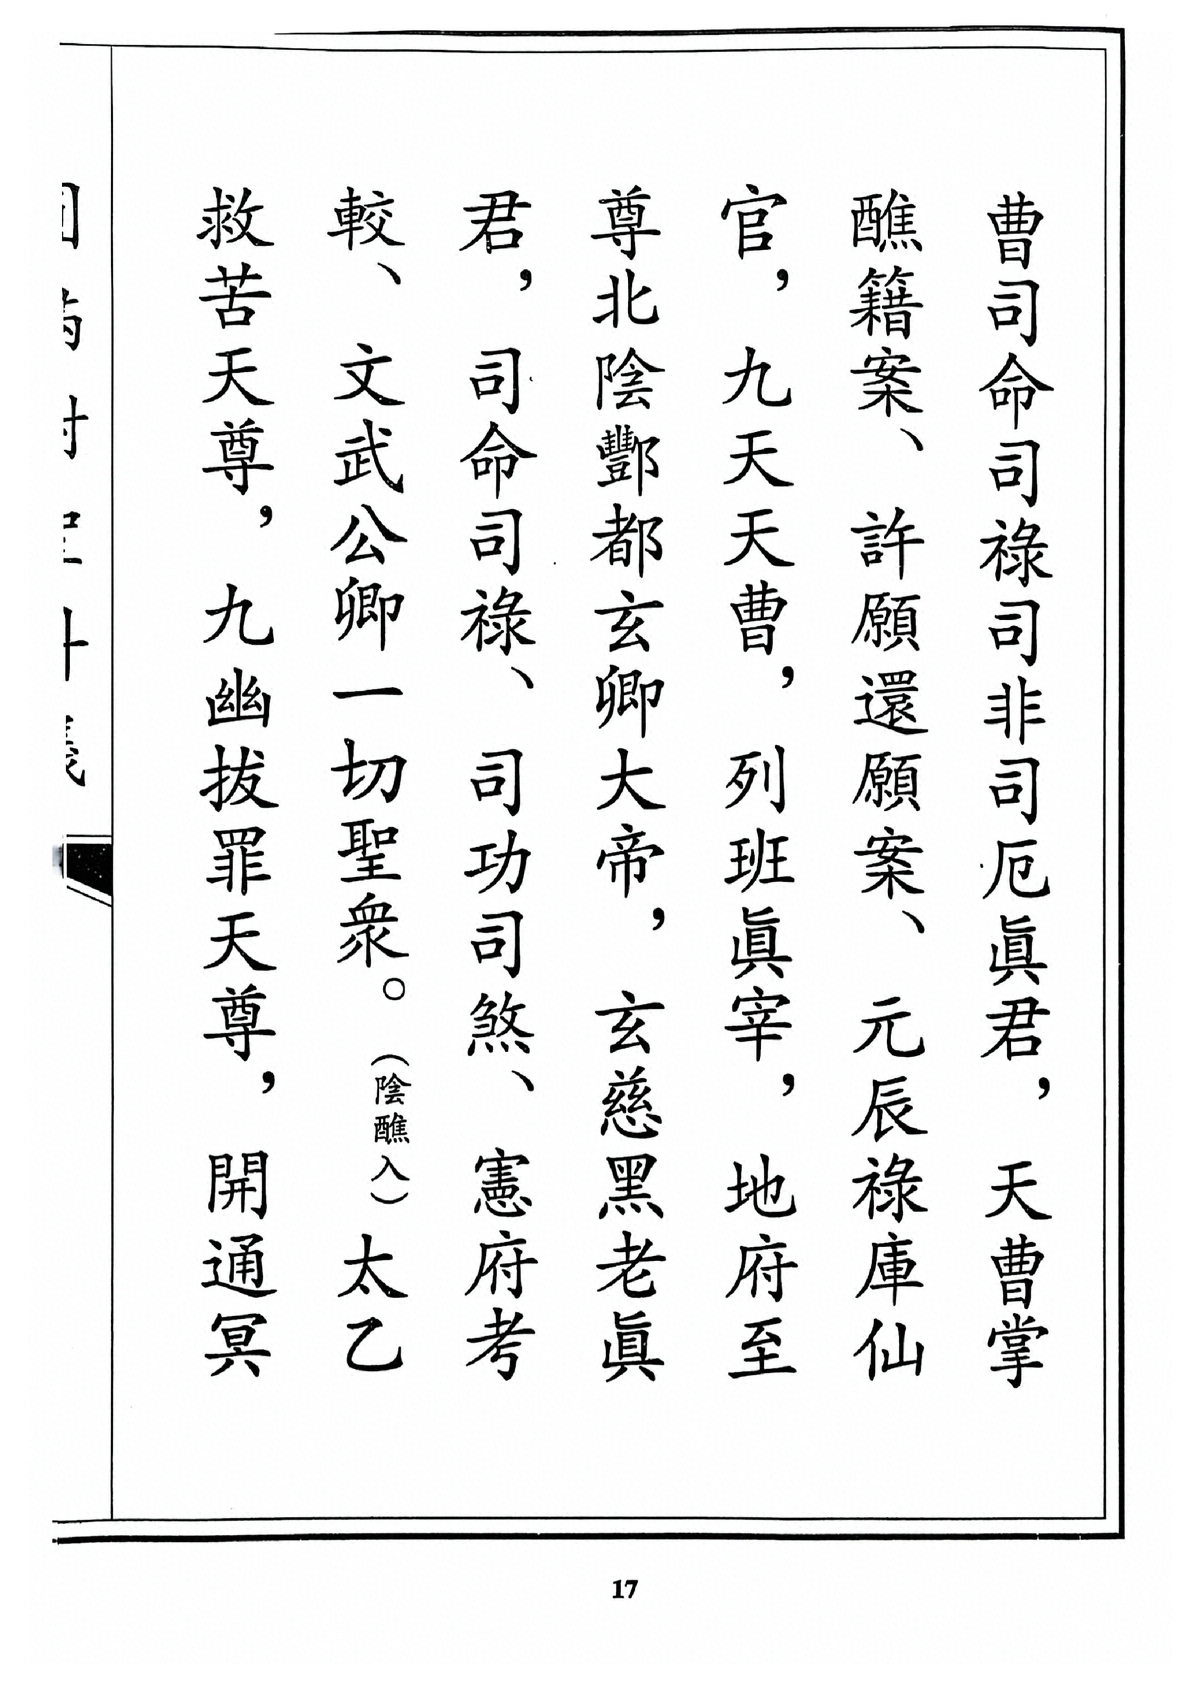 曹司命司祿司非司厄眞君，天曹掌
醮籍案、許願還願案、元辰祿庫仙
官，九天天曹，列班眞宰，地府至
尊北陰酆都玄卿大帝，玄慈黑老眞
君，司命司祿、司功司煞、憲府考
較、文武公卿一切聖衆。（陰醮入）太乙
救苦天尊，九幽拔罪天尊，開通冥
17